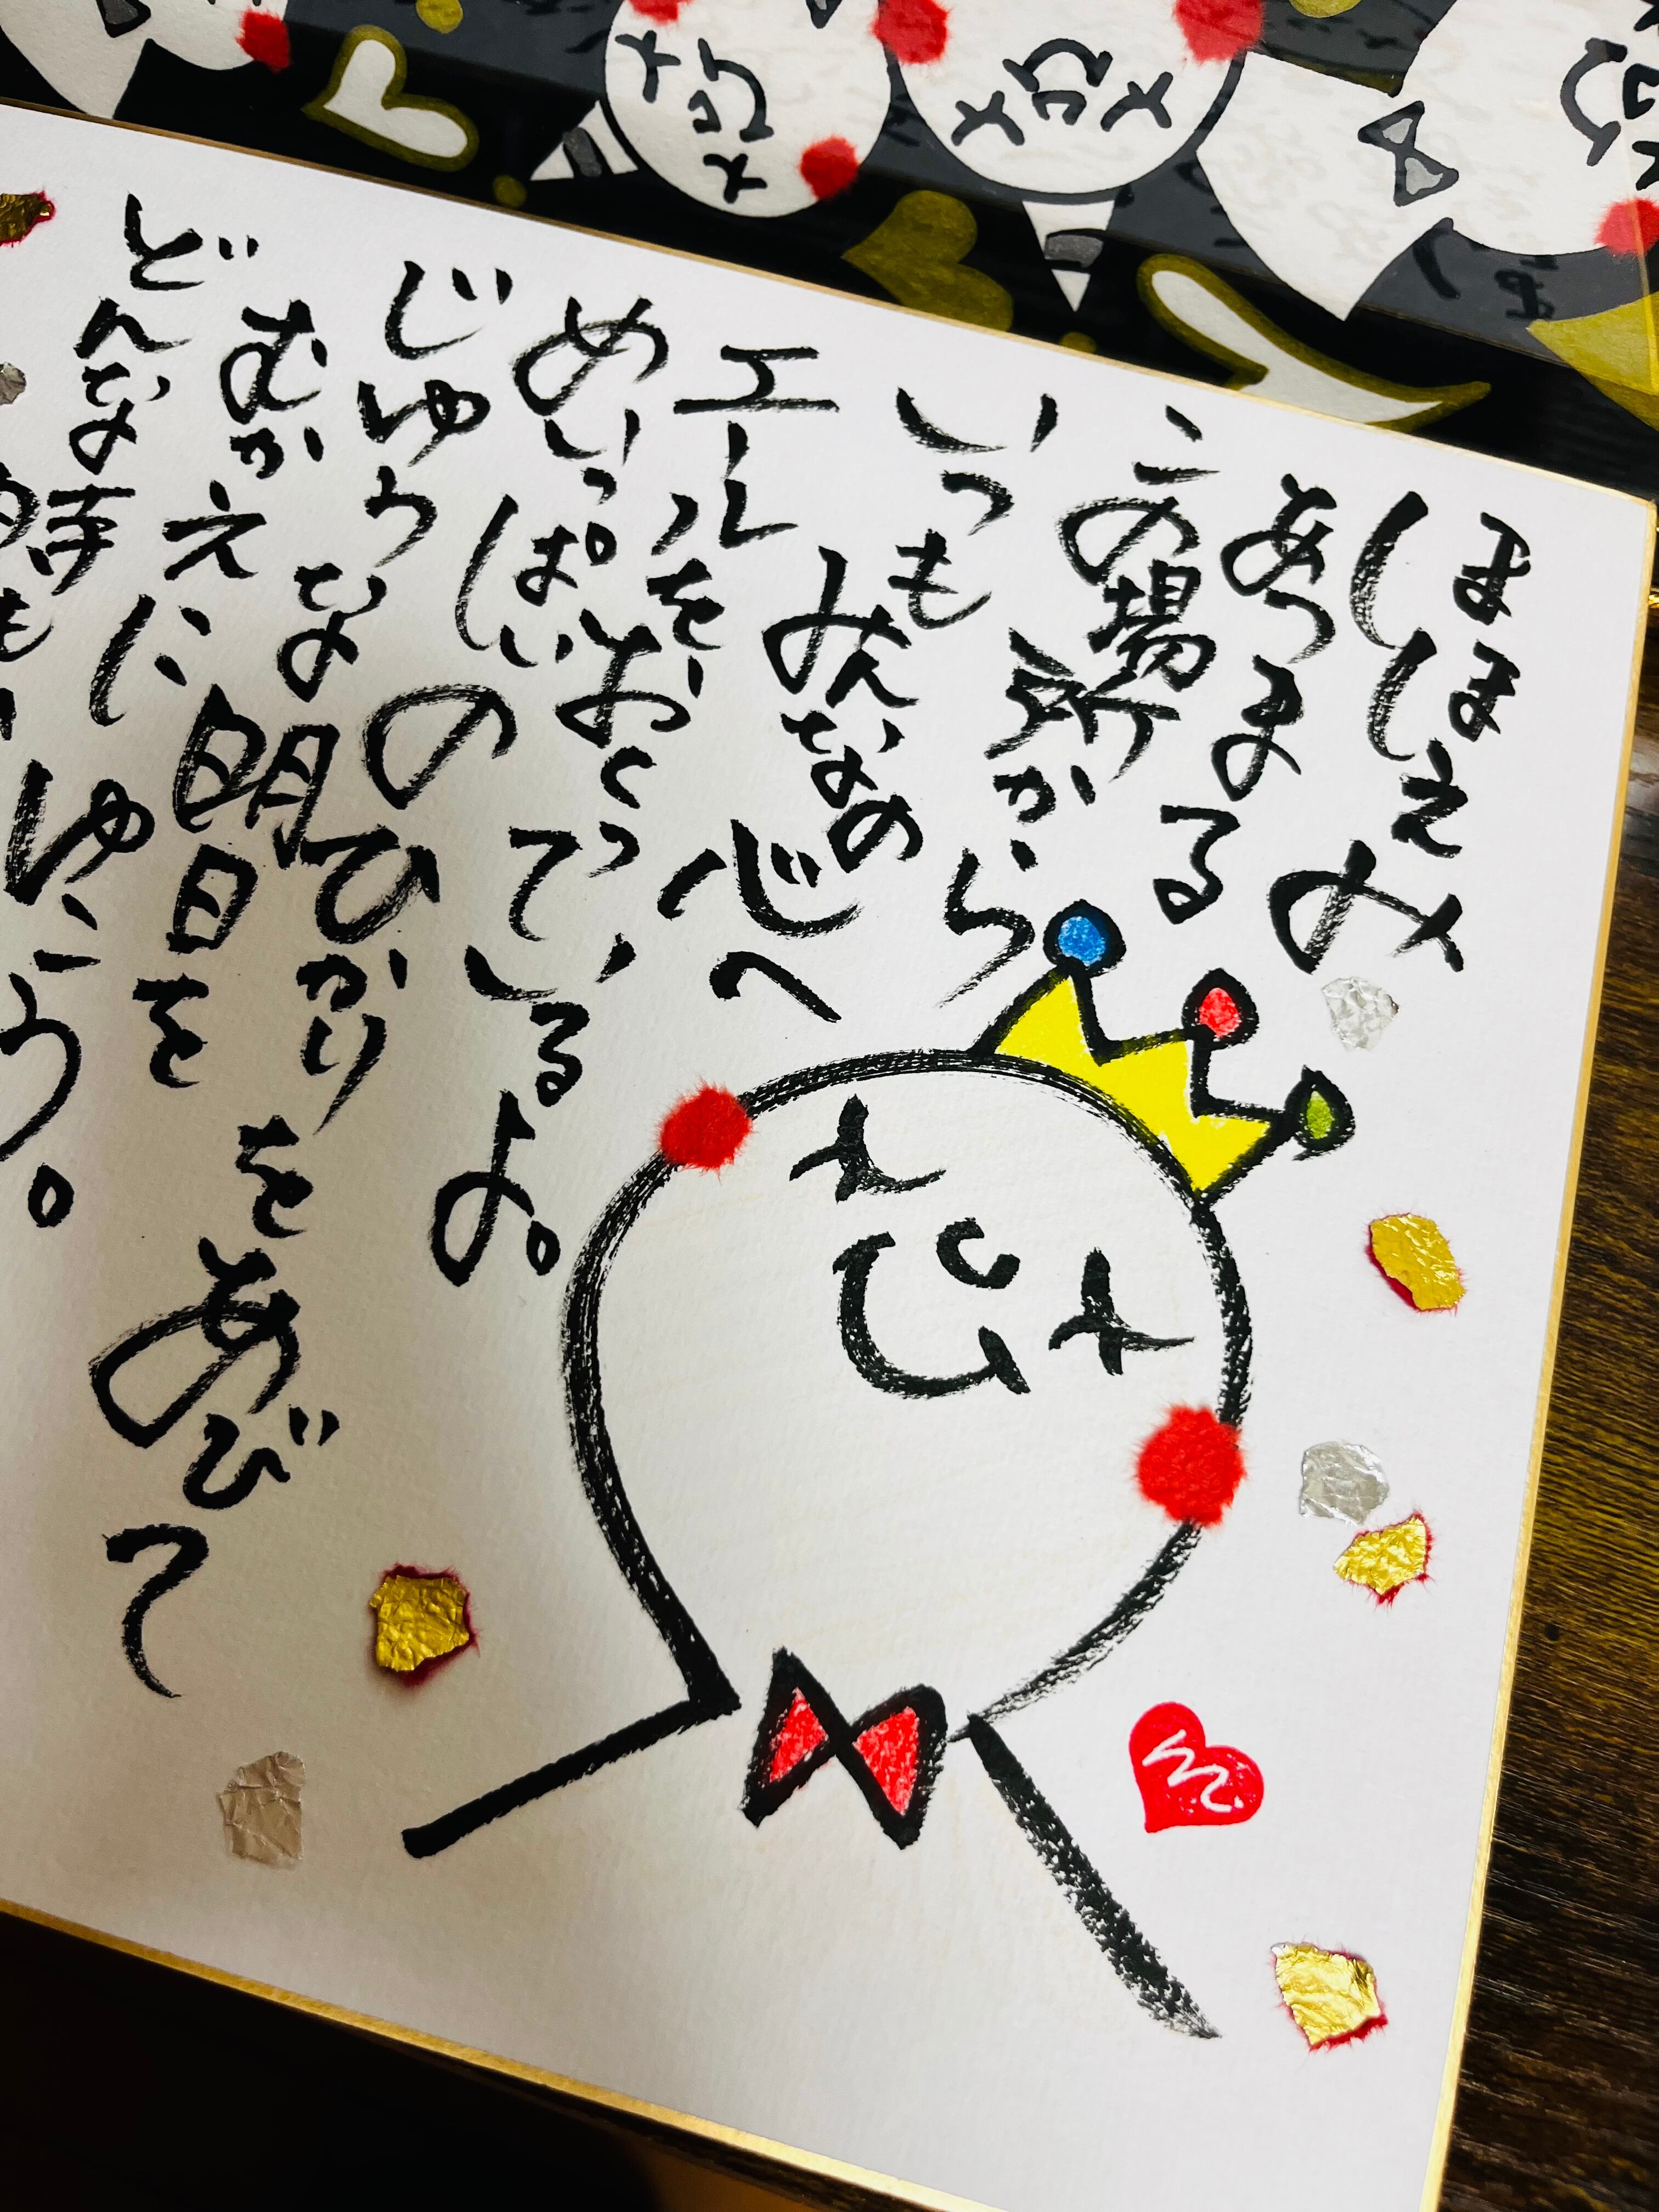 ほほえみ
あつまる
この場所から
いつもみんなの心へ
エールを、おくっているよ。
めいっぱいのひかりをあびて
じゆうな明日を
むかえにゆこう。
どんな時も